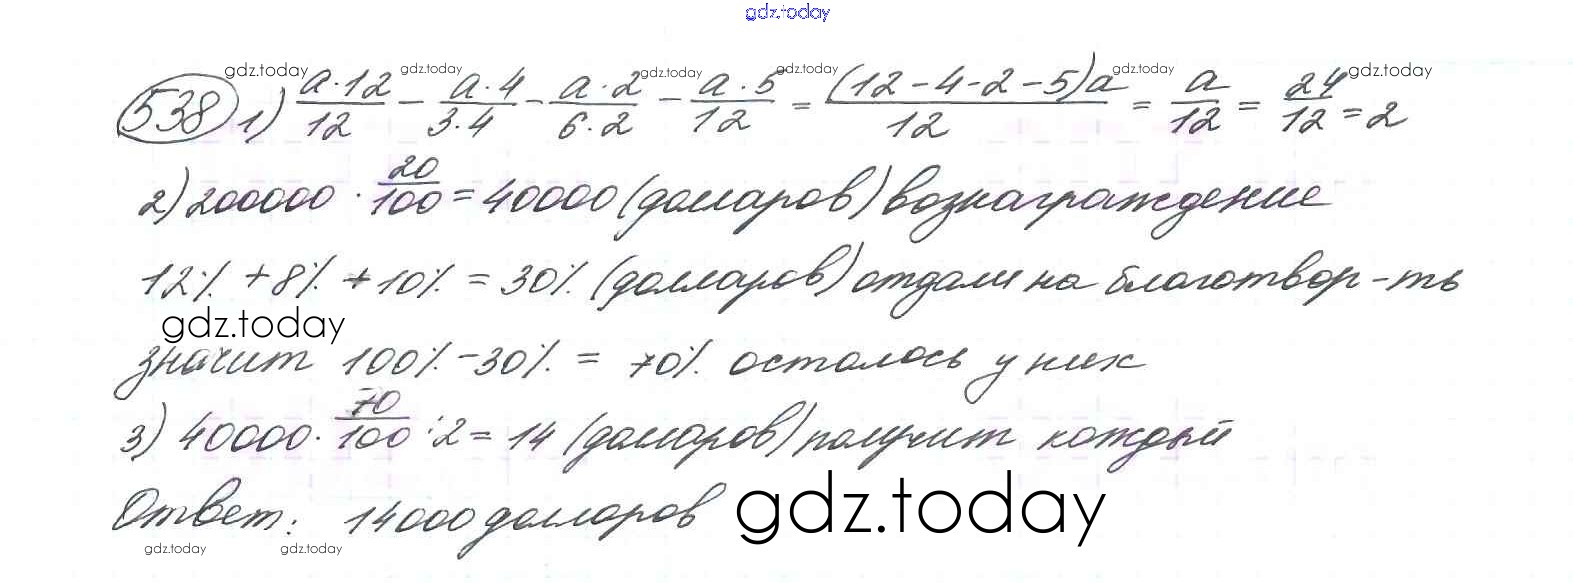 gdz.today
gdz.today gdz.today gdz.today gdz.today gdz.today gdz.today
538 1) a·12/12 - a·4/3·4 - a·2/6·2 - a·5/12 = (12-4-2-5)a/12 = a/12 = 24/12 = 2
2) 200000 · 20/100 = 40000 (долларов) вознаграждение
12% + 8% + 10% = 30% (долларов) отдали на благотвор-ть
gdz.today
значит 100% - 30% = 70% осталось у них
3) 40000 · 70/100 : 2 = 14 (долларов) получит каждый
Ответ: 14000 долларов gdz.today
gdz.today gdz.today